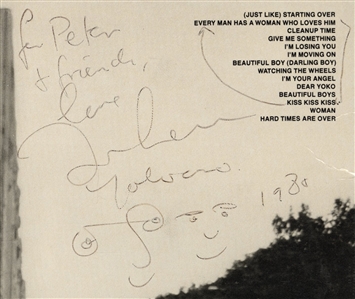 (JUST LIKE) STARTING OVER
EVERY MAN HAS A WOMAN WHO LOVES HIM
CLEANUP TIME
GIVE ME SOMETHING
I'M LOSING YOU
I'M MOVING ON
BEAUTIFUL BOY (DARLING BOY)
WATCHING THE WHEELS
I'M YOUR ANGEL
DEAR YOKO
BEAUTIFUL BOYS
KISS KISS KISS
WOMAN
HARD TIMES ARE OVER
for Peter
+ friends,
love
1980